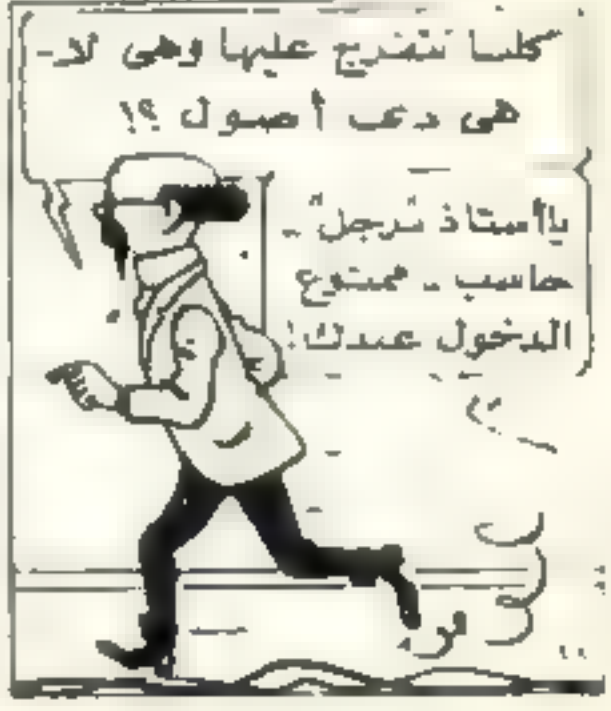 كلنا نتفرج عليها وهى لا-
هى دعب أصول ؟!
ياأستاذ مرجل ..
حاسب .. ممنوع
الدخول عندك !